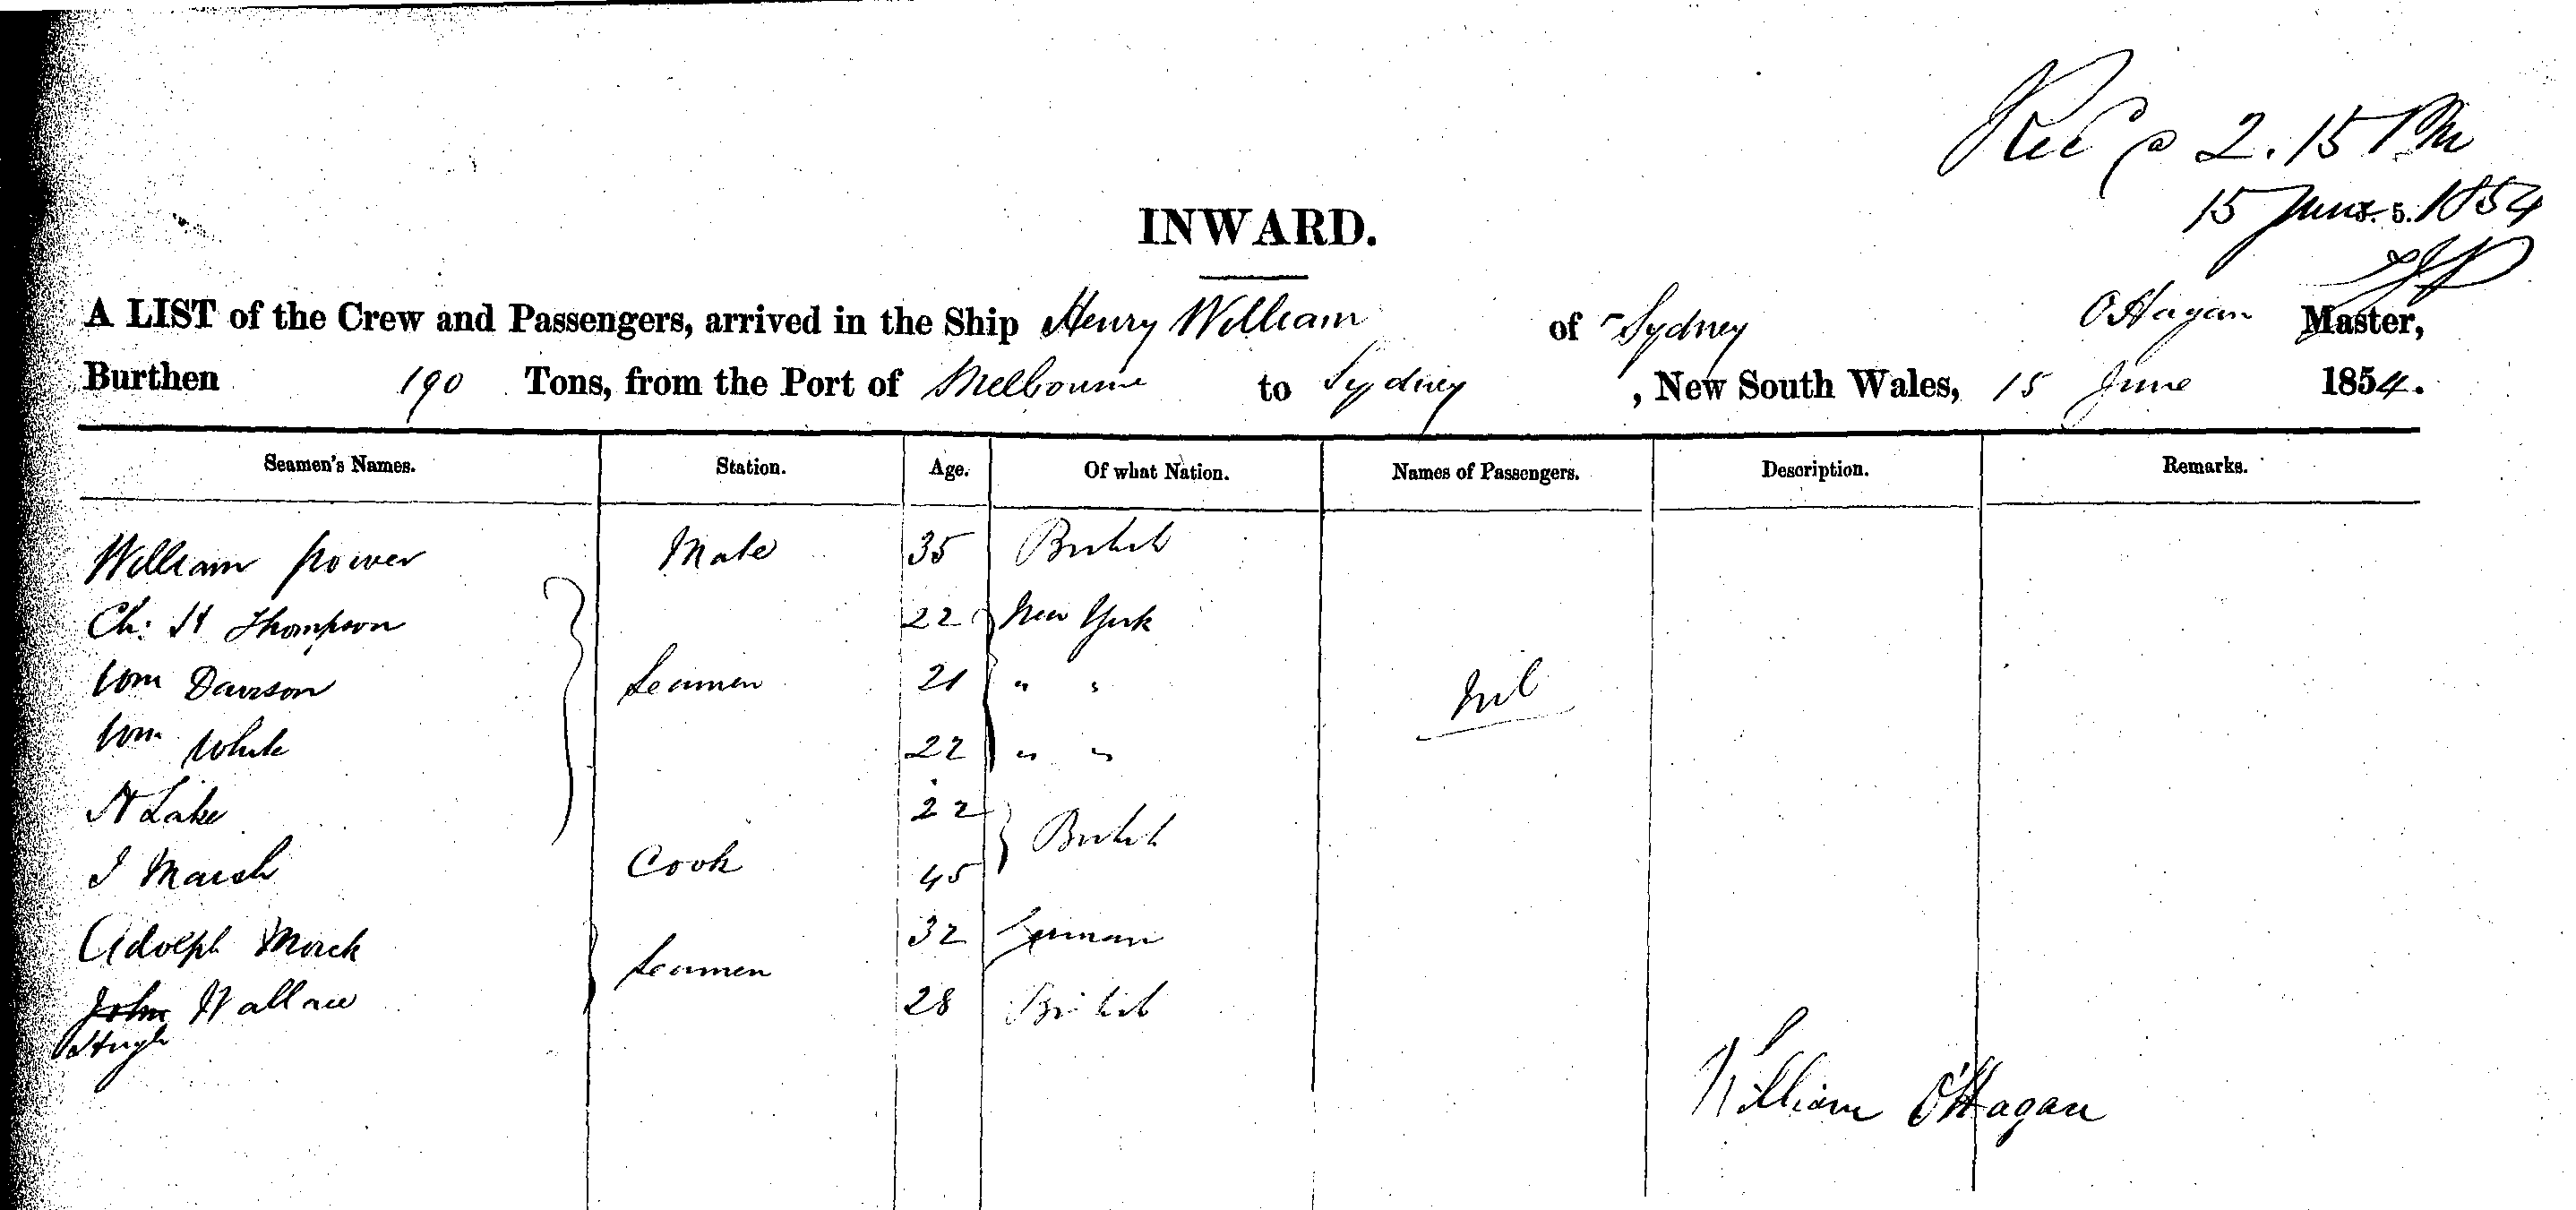 Rec @ 2.15 PM
15 June 1854
INWARD.
A LIST of the Crew and Passengers, arrived in the Ship Henry William of Sydney O'Hagan Master,
Burthen 190 Tons, from the Port of Melbourne to Sydney, New South Wales, 15 June 1854.
Seamen's Names. Station. Age. Of what Nation. Names of Passengers. Description. Remarks.
William Power Mate 35 British
Ch: H Thompson 22 New York
Wm Dawson Seamen 21 " " Nil
Wm White 22 " "
H Lake 22
British
J Marsh Cook 45
Adolph Morck 32 German
Seamen
John Wallace 28 British
Hugh
William O'Hagan